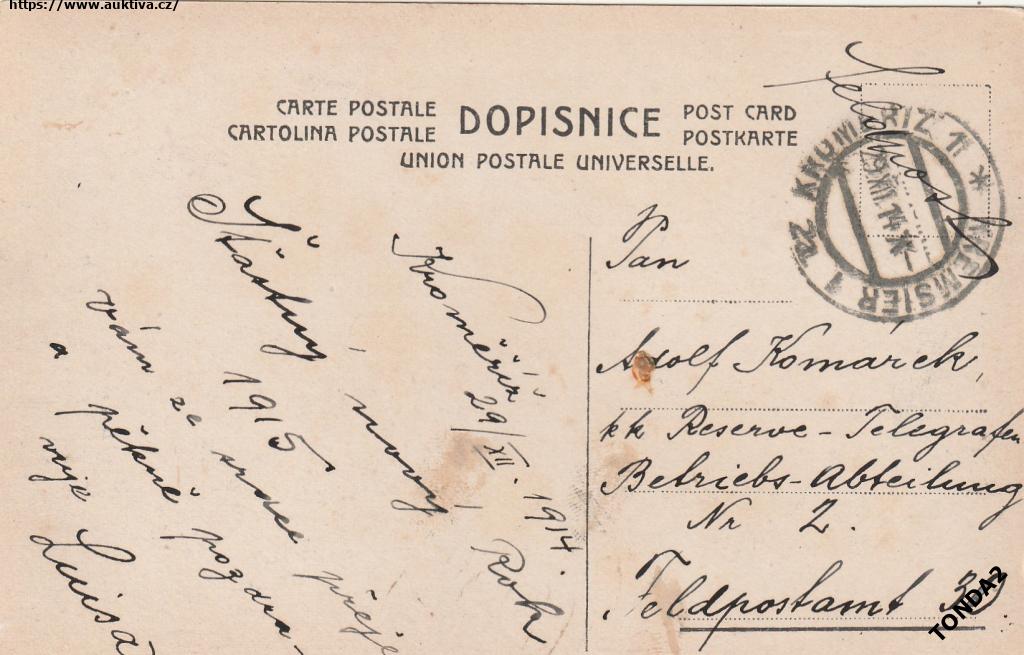 https://www.auktiva.cz/
CARTE POSTALE
CARTOLINA POSTALE
DOPISNICE
POST CARD
POSTKARTE
UNION POSTALE UNIVERSELLE.
Feldpost
1 22 KROMĚŘÍŽ 1 * KREMSIER
XII. 14
Kroměříž
29/XII. 1914.
Šťastný nový Rok
1915
vám ze srdce přeje
a pěkně pozdra-
vuje Luisa
Pan
Adolf Komárek,
kk Reserve-Telegrafen
Betriebs-Abteilung
Nr 2.
Feldpostamt
TONDA2